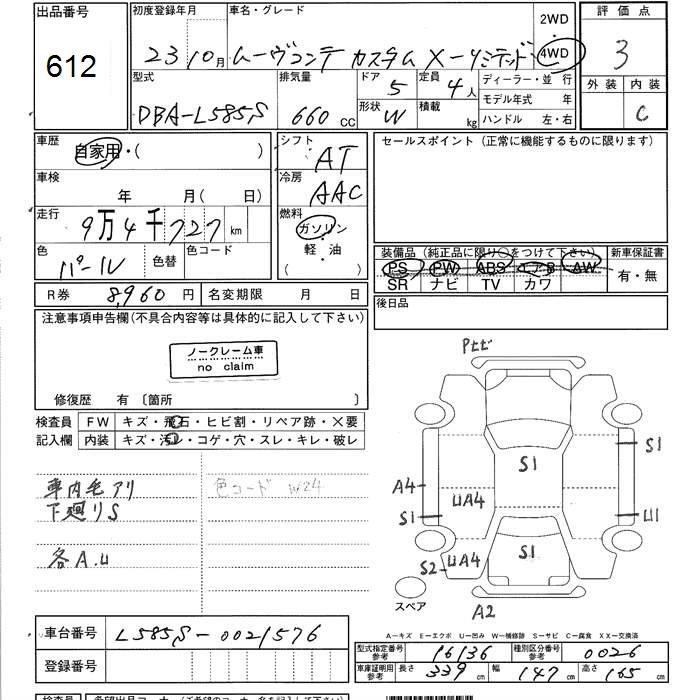 出品番号
612
初度登録年月
23 10月
車名・グレード
ムーヴコンテ カスタム X-リミテッド
2WD
4WD
評価点
3
型式
DBA-L585S
排気量
660 CC
ドア
5
定員
4人
形状
W
積載
kg
ディーラー・並 行
モデル年式 年
ハンドル 左・右
外装
内装
C
車歴
自家用・( )
車検
年 月( 日)
走行
9万4千727 km
色
パール
色替
色コード
シフト
AT
冷房
AAC
燃料
ガソリン
・
軽・油
( )
セールスポイント (正常に機能するものに限ります)
装備品 (純正品に限り○をつけて下さい)
PS PW ABS AW
SR ナビ TV カワ
新車保証書
有・無
R券 8,960 円
名変期限 月 日
後日品
注意事項申告欄(不具合内容等は具体的に記入して下さい)
ノークレーム車
no claim
修復歴 有 〔箇所 〕
検査員
記入欄
FW キズ・飛石・ヒビ割・リペア跡・×要
内装 キズ・汚レ・コゲ・穴・スレ・キレ・破レ
車内毛アリ
下廻りS
各A.U
色コード W24
Pナビ
S1
S1
A4
UA4
S1
U1
S2
UA4
S1
スペア
A2
A-キズ E-エクボ U-凹み W-補修跡 S-サビ C-腐食 XX-交換済
車台番号
L585S-0021576
登録番号
型式指定番号
参考
16136
種別区分番号
参考
0026
車庫証明用
参考
長さ 339 cm
幅 147 cm
高さ 165 cm